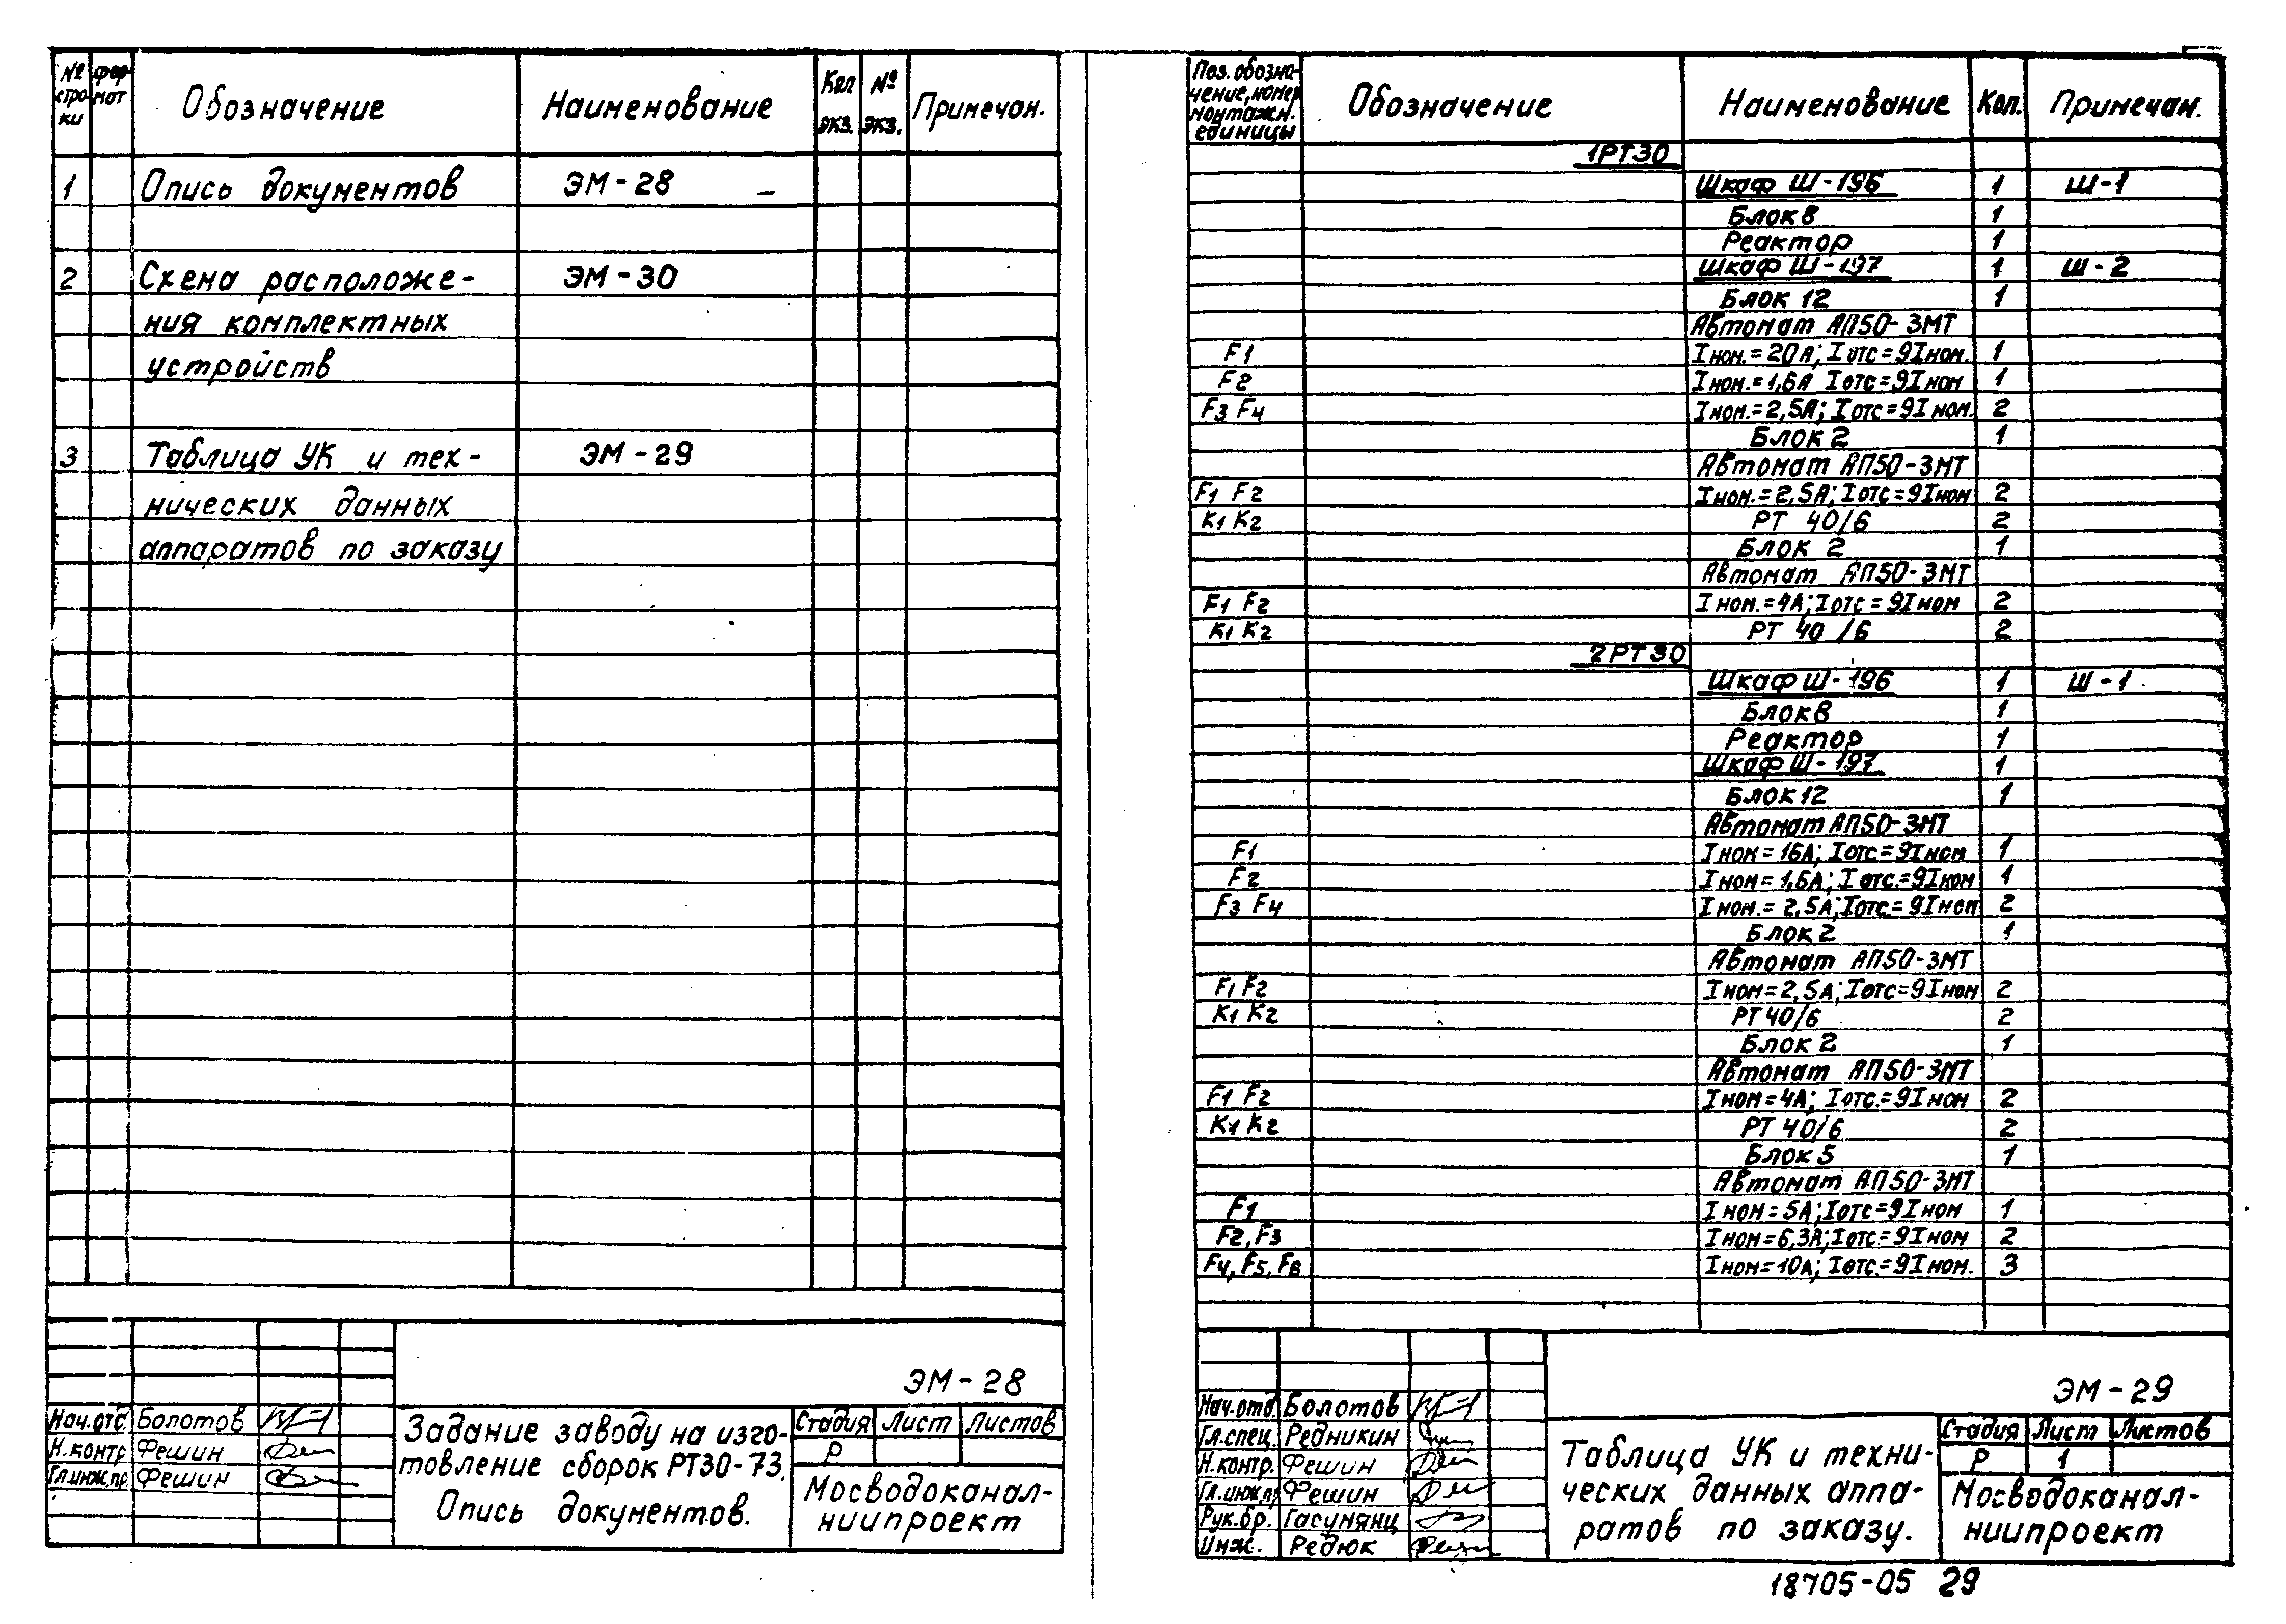 № строки формат Обозначение Наименование Кол экз. № экз. Примечан.
1 Опись документов ЭМ-28 –
2 Схема расположе- ЭМ-30
ния комплектных
устройств
3 Таблица УК и тех- ЭМ-29
нических данных
аппаратов по заказу
ЭМ-28
Нач.отд. Болотов
Н.контр Фешин
Гл.инж.пр. Фешин
Задание заводу на изго-
товление сборок РТ30-73.
Опись документов.
Стадия Лист Листов
Р
Мосводоканал-
ниипроект
Поз. обозна-
чение, номер
монтажн.
единицы
Обозначение Наименование Кол. Примечан.
1РТ30
Шкаф Ш-196 1 Ш-1
Блок 8 1
Реактор 1
Шкаф Ш-197 1 Ш-2
Блок 12 1
Автомат АП50-3МТ
F1 Iном.=20А; Iотс=9Iном. 1
F2 Iном.=1,6А Iотс=9Iном 1
F3 F4 Iном.=2,5А; Iотс=9Iном. 2
Блок 2 1
Автомат АП50-3МТ
F1 F2 Iном.=2,5А; Iотс=9Iном 2
К1 К2 РТ 40/6 2
Блок 2 1
Автомат АП50-3МТ
F1 F2 Iном.=4А; Iотс=9Iном 2
К1 К2 РТ 40/6 2
2РТ30
Шкаф Ш-196 1 Ш-1
Блок 8 1
Реактор 1
Шкаф Ш-197 1
Блок 12 1
Автомат АП50-3МТ
F1 Iном=16А; Iотс=9Iном 1
F2 Iном=1,6А; Iотс.=9Iном 1
F3 F4 Iном.=2,5А; Iотс=9Iном 2
Блок 2 1
Автомат АП50-3МТ
F1 F2 Iном=2,5А; Iотс=9Iном 2
К1 К2 РТ 40/6 2
Блок 2 1
Автомат АП50-3МТ
F1 F2 Iном=4А; Iотс.=9Iном 2
К1 К2 РТ 40/6 2
Блок 5 1
Автомат АП50-3МТ
F1 Iном=5А; Iотс=9Iном 1
F2, F3 Iном=6,3А; Iотс.=9Iном 2
F4, F5, F6 Iном=10А; Iотс.=9Iном. 3
ЭМ-29
Нач.отд. Болотов
Гл.спец. Редникин
Н.контр. Фешин
Гл.инж.пр Фешин
Рук.бр. Гасумянц
Инж. Редюк
Таблица УК и техни-
ческих данных аппа-
ратов по заказу.
Стадия Лист Листов
Р 1
Мосводоканал-
ниипроект
18705-05 29